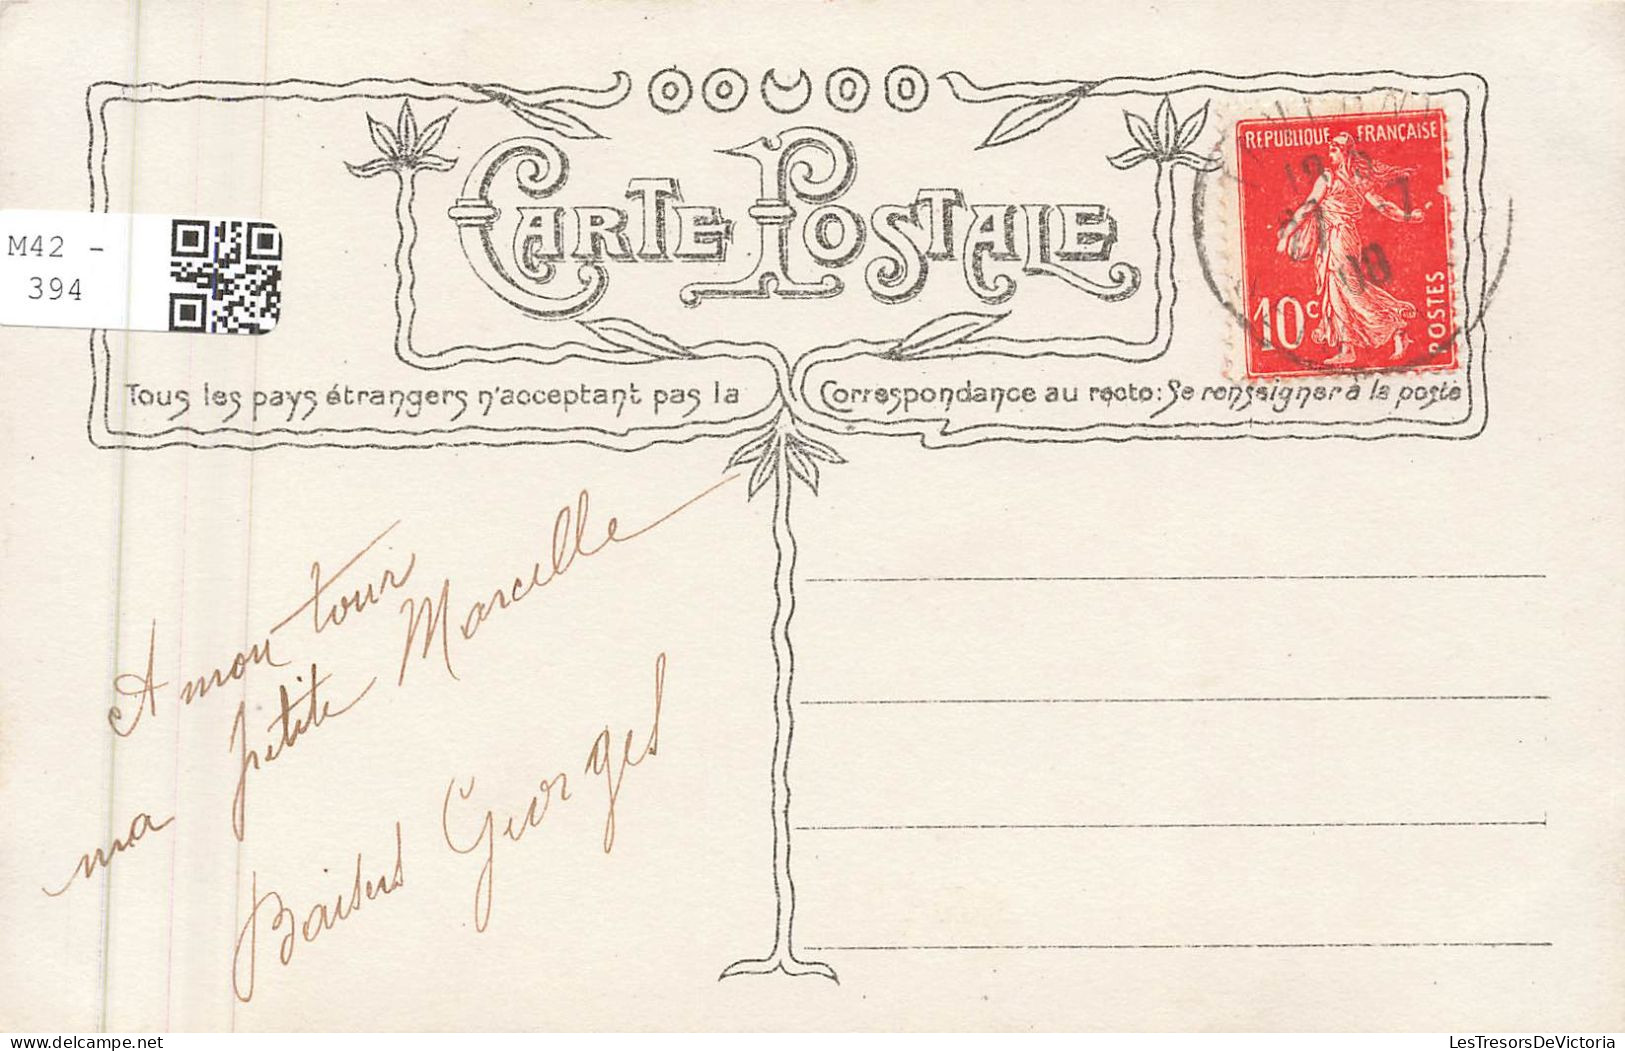 CARTE POSTALE
REPUBLIQUE FRANÇAISE
10c
POSTES
27 -7
08
M42 -
394
Tous les pays étrangers n'acceptant pas la Correspondance au recto: Se renseigner à la poste
A mon tour
ma petite Marcelle
Baisers Georges
LesTresorsDeVictoria
delcampe.net